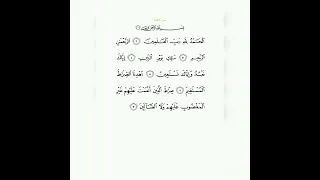 بِسْمِ ٱللَّهِ ٱلرَّحْمَٰنِ ٱلرَّحِيمِ ١
ٱلْحَمْدُ لِلَّهِ رَبِّ ٱلْعَٰلَمِينَ ٢ ٱلرَّحْمَٰنِ
ٱلرَّحِيمِ ٣ مَٰلِكِ يَوْمِ ٱلدِّينِ ٤ إِيَّاكَ
نَعْبُدُ وَإِيَّاكَ نَسْتَعِينُ ٥ ٱهْدِنَا ٱلصِّرَٰطَ
ٱلْمُسْتَقِيمَ ٦ صِرَٰطَ ٱلَّذِينَ أَنْعَمْتَ عَلَيْهِمْ غَيْرِ
ٱلْمَغْضُوبِ عَلَيْهِمْ وَلَا ٱلضَّآلِّينَ ٧